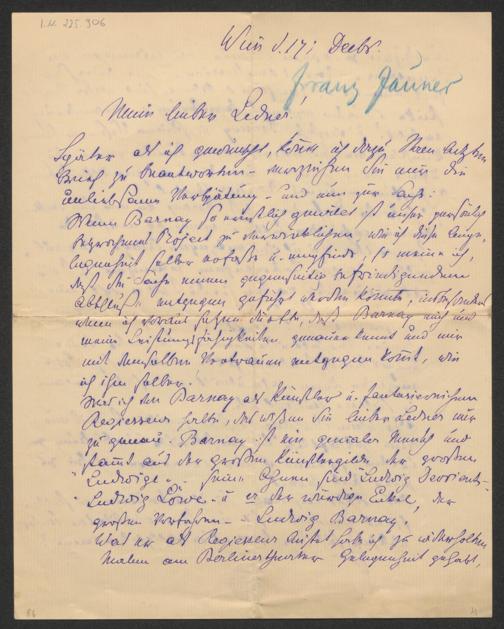 I.N. 225.906
Wien d. 17; Decbr.
Franz Jauner
Mein lieber Ledner!
Später als ich gewünscht, komm ich dazu Ihren
Brief zu beantworten – verzeihen Sie mir die
unliebsame Verspätung – und nun zur Sache.
Wenn Barnay so ernstlich gewillt ist unser persönlich
besprochenes Project zu verwirklichen wie ich diese Ange-
legenheit selber erfasse u. empfinde, so meine ich,
daß die Sache einem gegenseitig befriedigenden
Abschluß entgegen geführt werden könnte, insbesondere
wenn ich voraus setzen dürfte, daß Barnay mich und
meine Leistungsfähigkeiten, genau kennt und mir
mit demselben Vertrauen entgegen kömt, wie
ich ihm selber!
Was ich von Barnay als Künstler u. fantasiereichen
Regisseur halte, das wißen Sie lieber Ledner nur
zu genau. Barnay ist ein genialer Mensch und
stamt aus der großen Künstlergilde der großen
"Ludwige". Seine Ahnen sind "Ludwig Devrient" –
"Ludwig Löwe" – u. er der würdige Enkel, der
großen Vorfahren – Ludwig Barnay.
Was er als Regisseur leistet hatte ich zu wiederholten
Malen am Berlinertheater Gelegenheit gehabt,